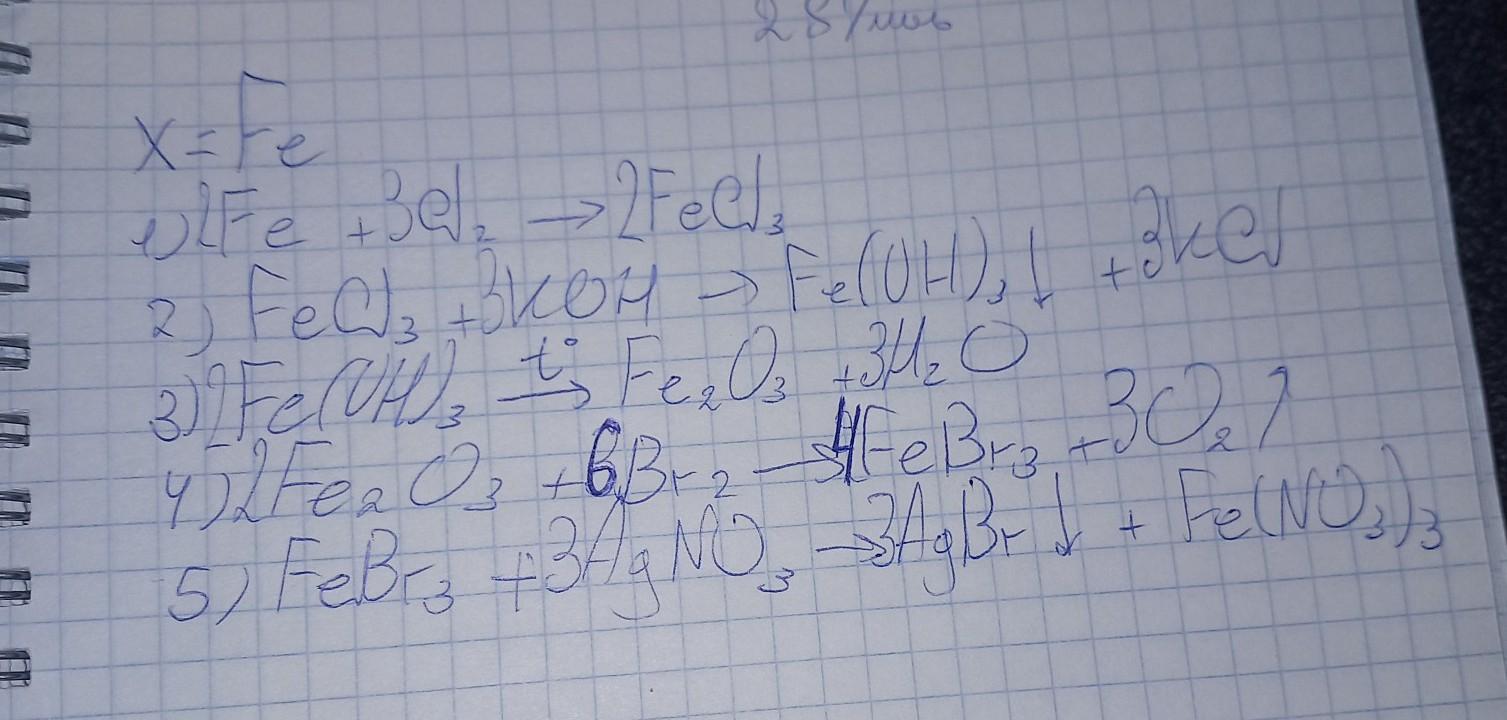 28 г/моль
X = Fe
1) 2Fe + 3Cl₂ → 2FeCl₃
2) FeCl₃ + 3KOH → Fe(OH)₃↓ + 3KCl
3) 2Fe(OH)₃ t° → Fe₂O₃ + 3H₂O
4) 2Fe₂O₃ + 6Br₂ → 4FeBr₃ + 3O₂↑
5) FeBr₃ + 3AgNO₃ → 3AgBr↓ + Fe(NO₃)₃